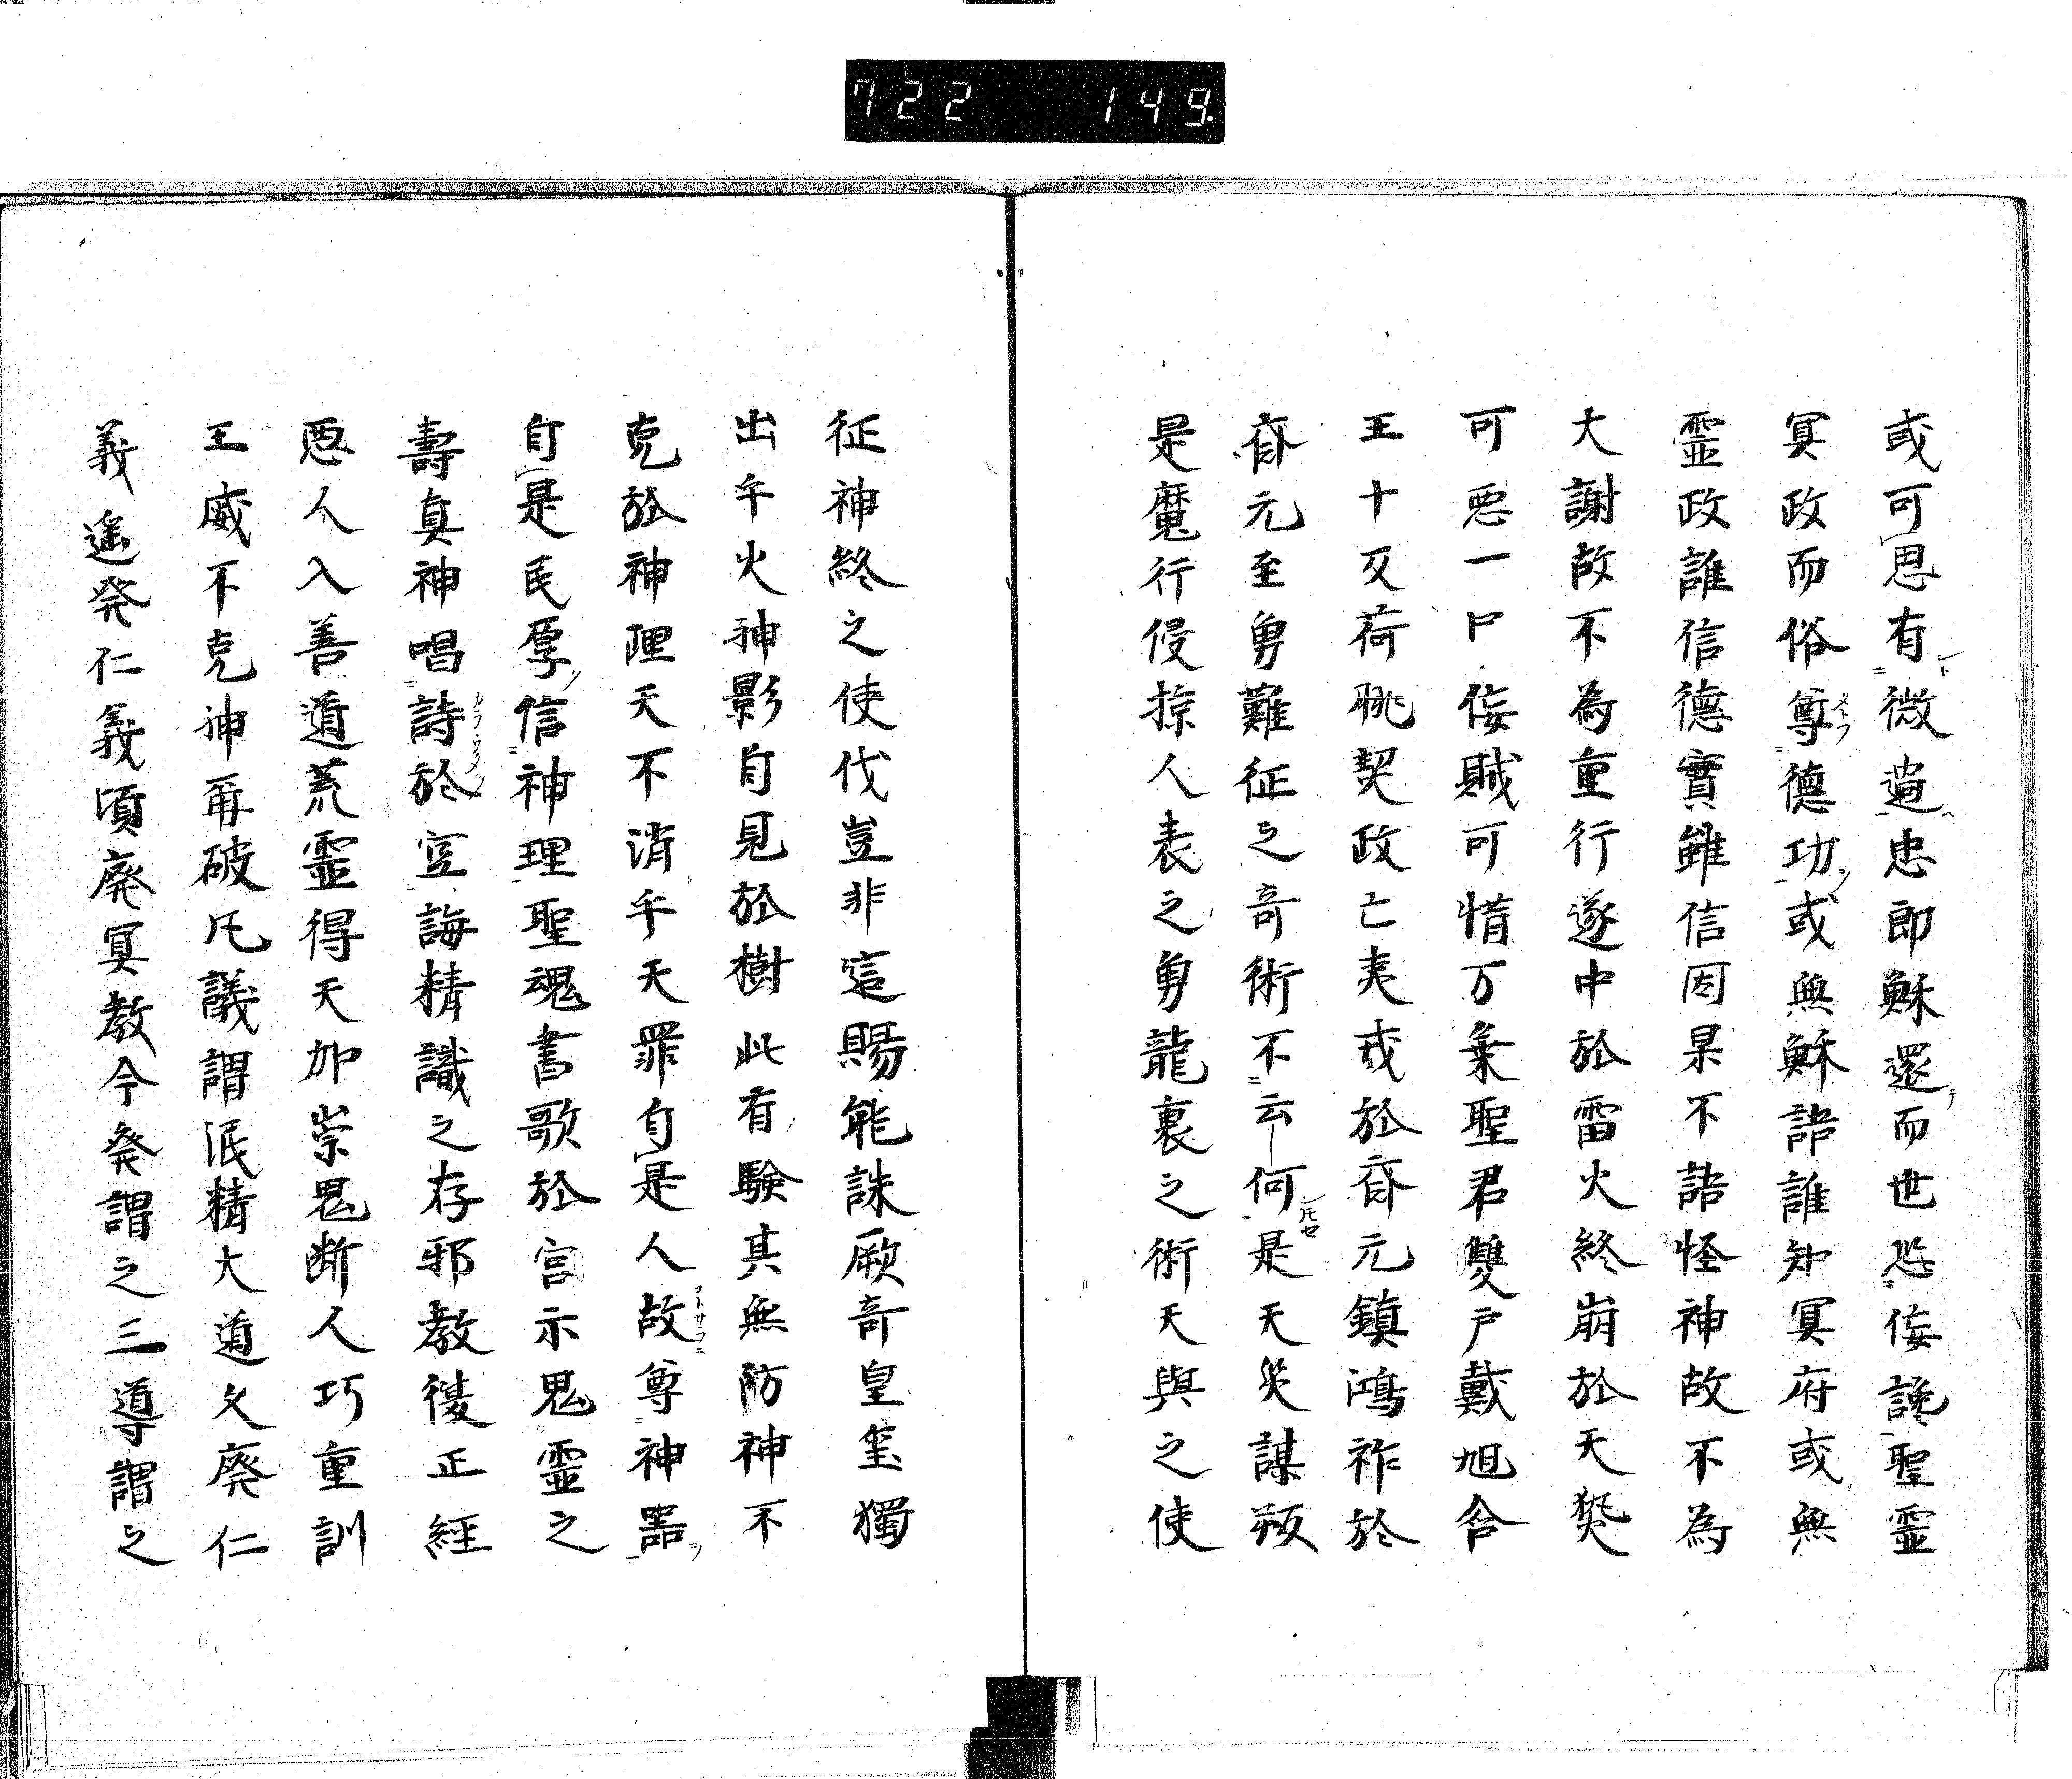 722 149
或可思有微過忠即穌還而世恐侫讒聖靈
冥政而俗尊德功或無穌語誰知冥府或無
靈政誰信德實雖信因果不語怪神故不為
大謝故不為重行遂中於雷火終崩於天焚
可惡一口侫賊可惜万彙聖君雙戸戴旭含
王十又荷眺契政亡夷戎於脊元鎮鴻祚於
脊元至勇難征之奇術不云何是天災謀叛
是魔行侵掠人表之勇龍裏之術天與之使
征神終之使伐豈非這賜能誅厥奇皇璽獨
出乎火神影自見於樹此有驗其無防神不
克於神理天不消乎天罪自是人故尊神器
自是民厚信神理聖魂書歌於宮示鬼靈之
壽真神唱詩於室誨精識之存邪教復正經
惡人入善道荒靈得天加崇鬼断人巧重訓
王威不克神再破凡議謂泯精大道久廢仁
義遥発仁義頃廢冥教今発謂之三導謂之